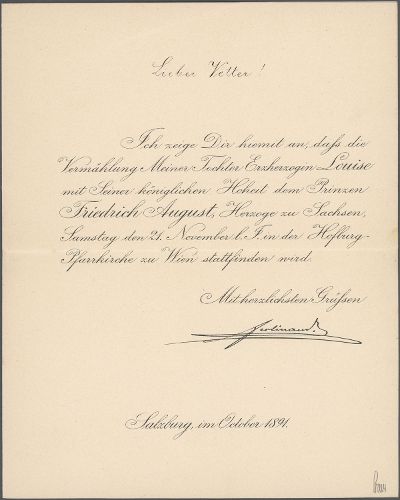 Lieber Vetter!
Ich zeige Dir hiemit an, daß die
Vermählung Meiner Tochter Erzherzogin Louise
mit Seiner königlichen Hoheit dem Prinzen
Friedrich August, Herzoge zu Sachsen,
Samstag den 21. November l. J. in der Hofburg-
Pfarrkirche zu Wien stattfinden wird.
Mit herzlichsten Grüßen
Ferdinand
Salzburg, im October 1891.